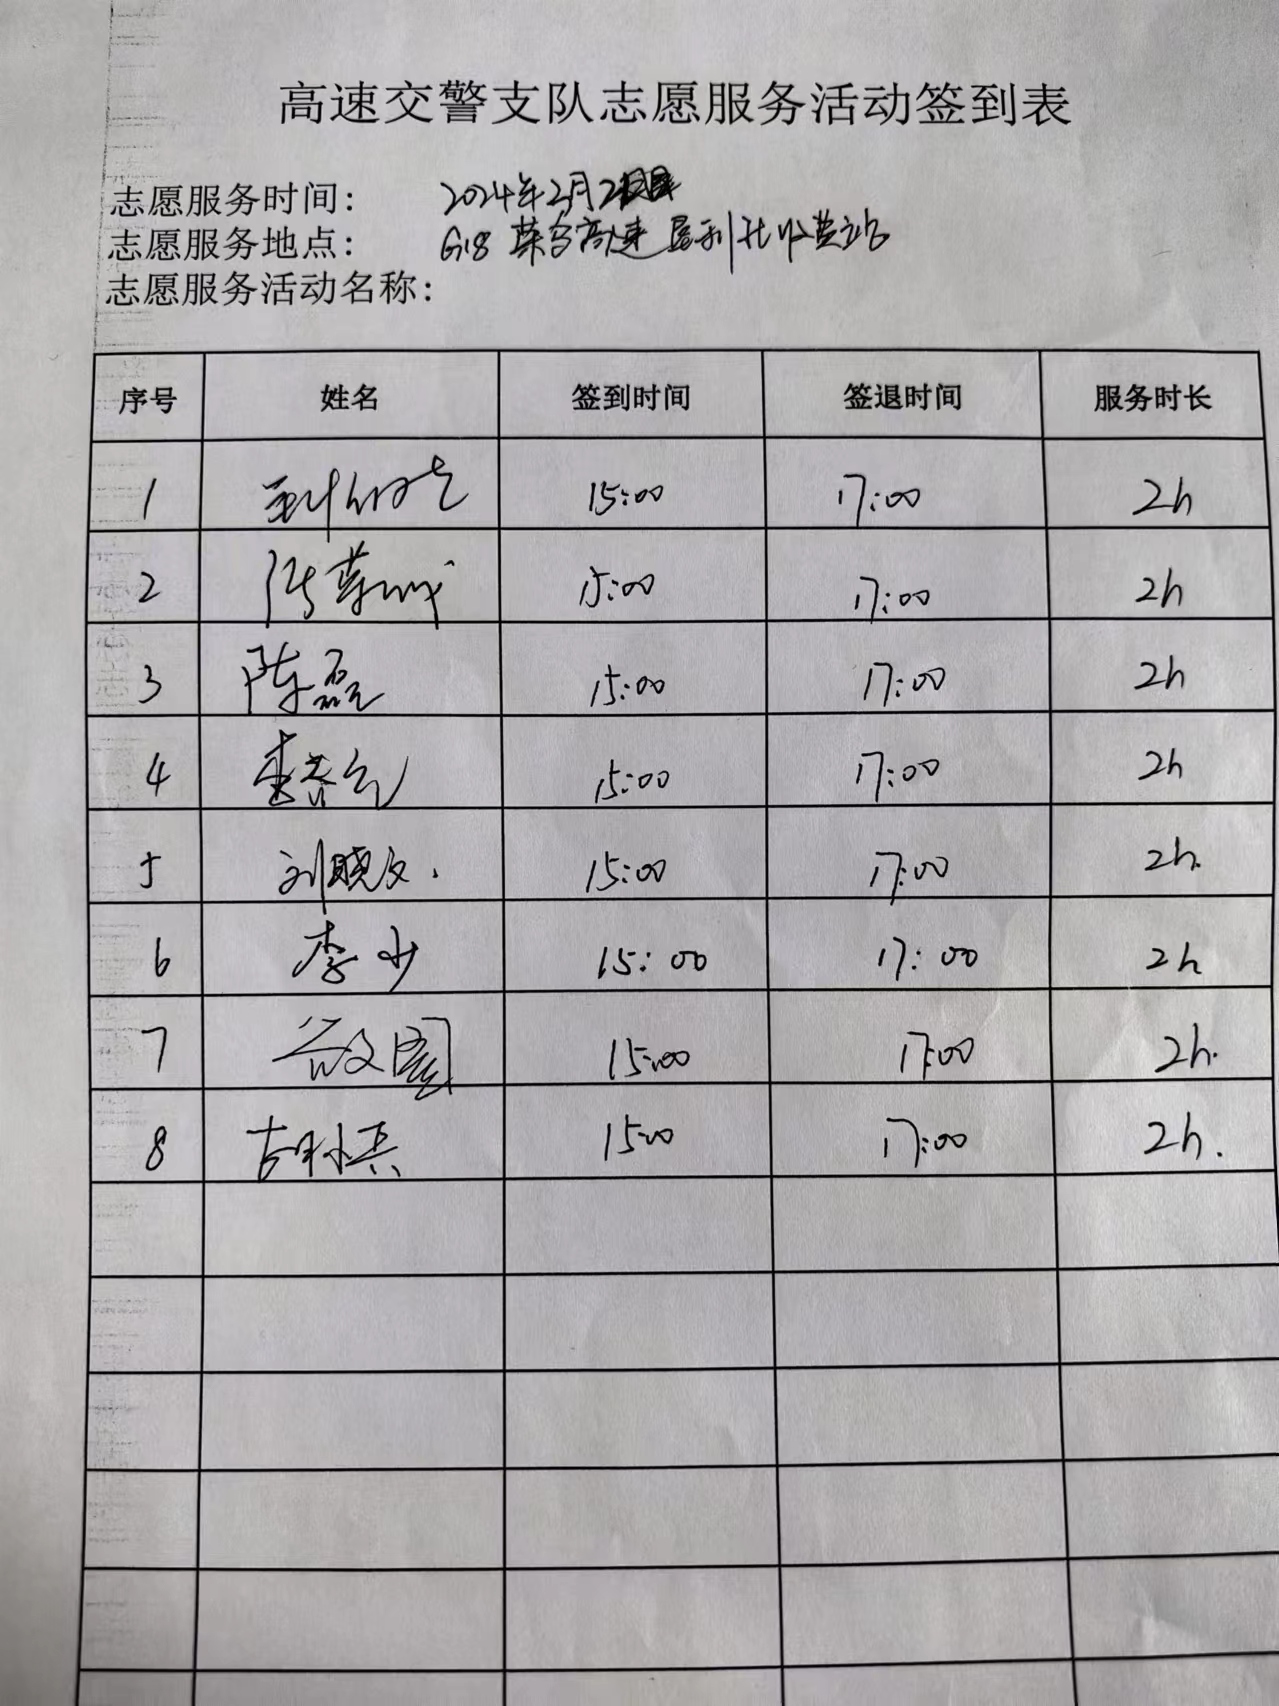 高速交警支队志愿服务活动签到表
志愿服务时间: 2024年2月2
志愿服务地点: G18 荣乌高速 垦利北收费站
志愿服务活动名称:
序号 姓名 签到时间 签退时间 服务时长
1 15:00 17:00 2h
2 15:00 17:00 2h
3 陈磊 15:00 17:00 2h
4 15:00 17:00 2h
5 刘晓文. 15:00 17:00 2h.
6 李少 15:00 17:00 2h
7 15:00 17:00 2h.
8 15:00 17:00 2h.